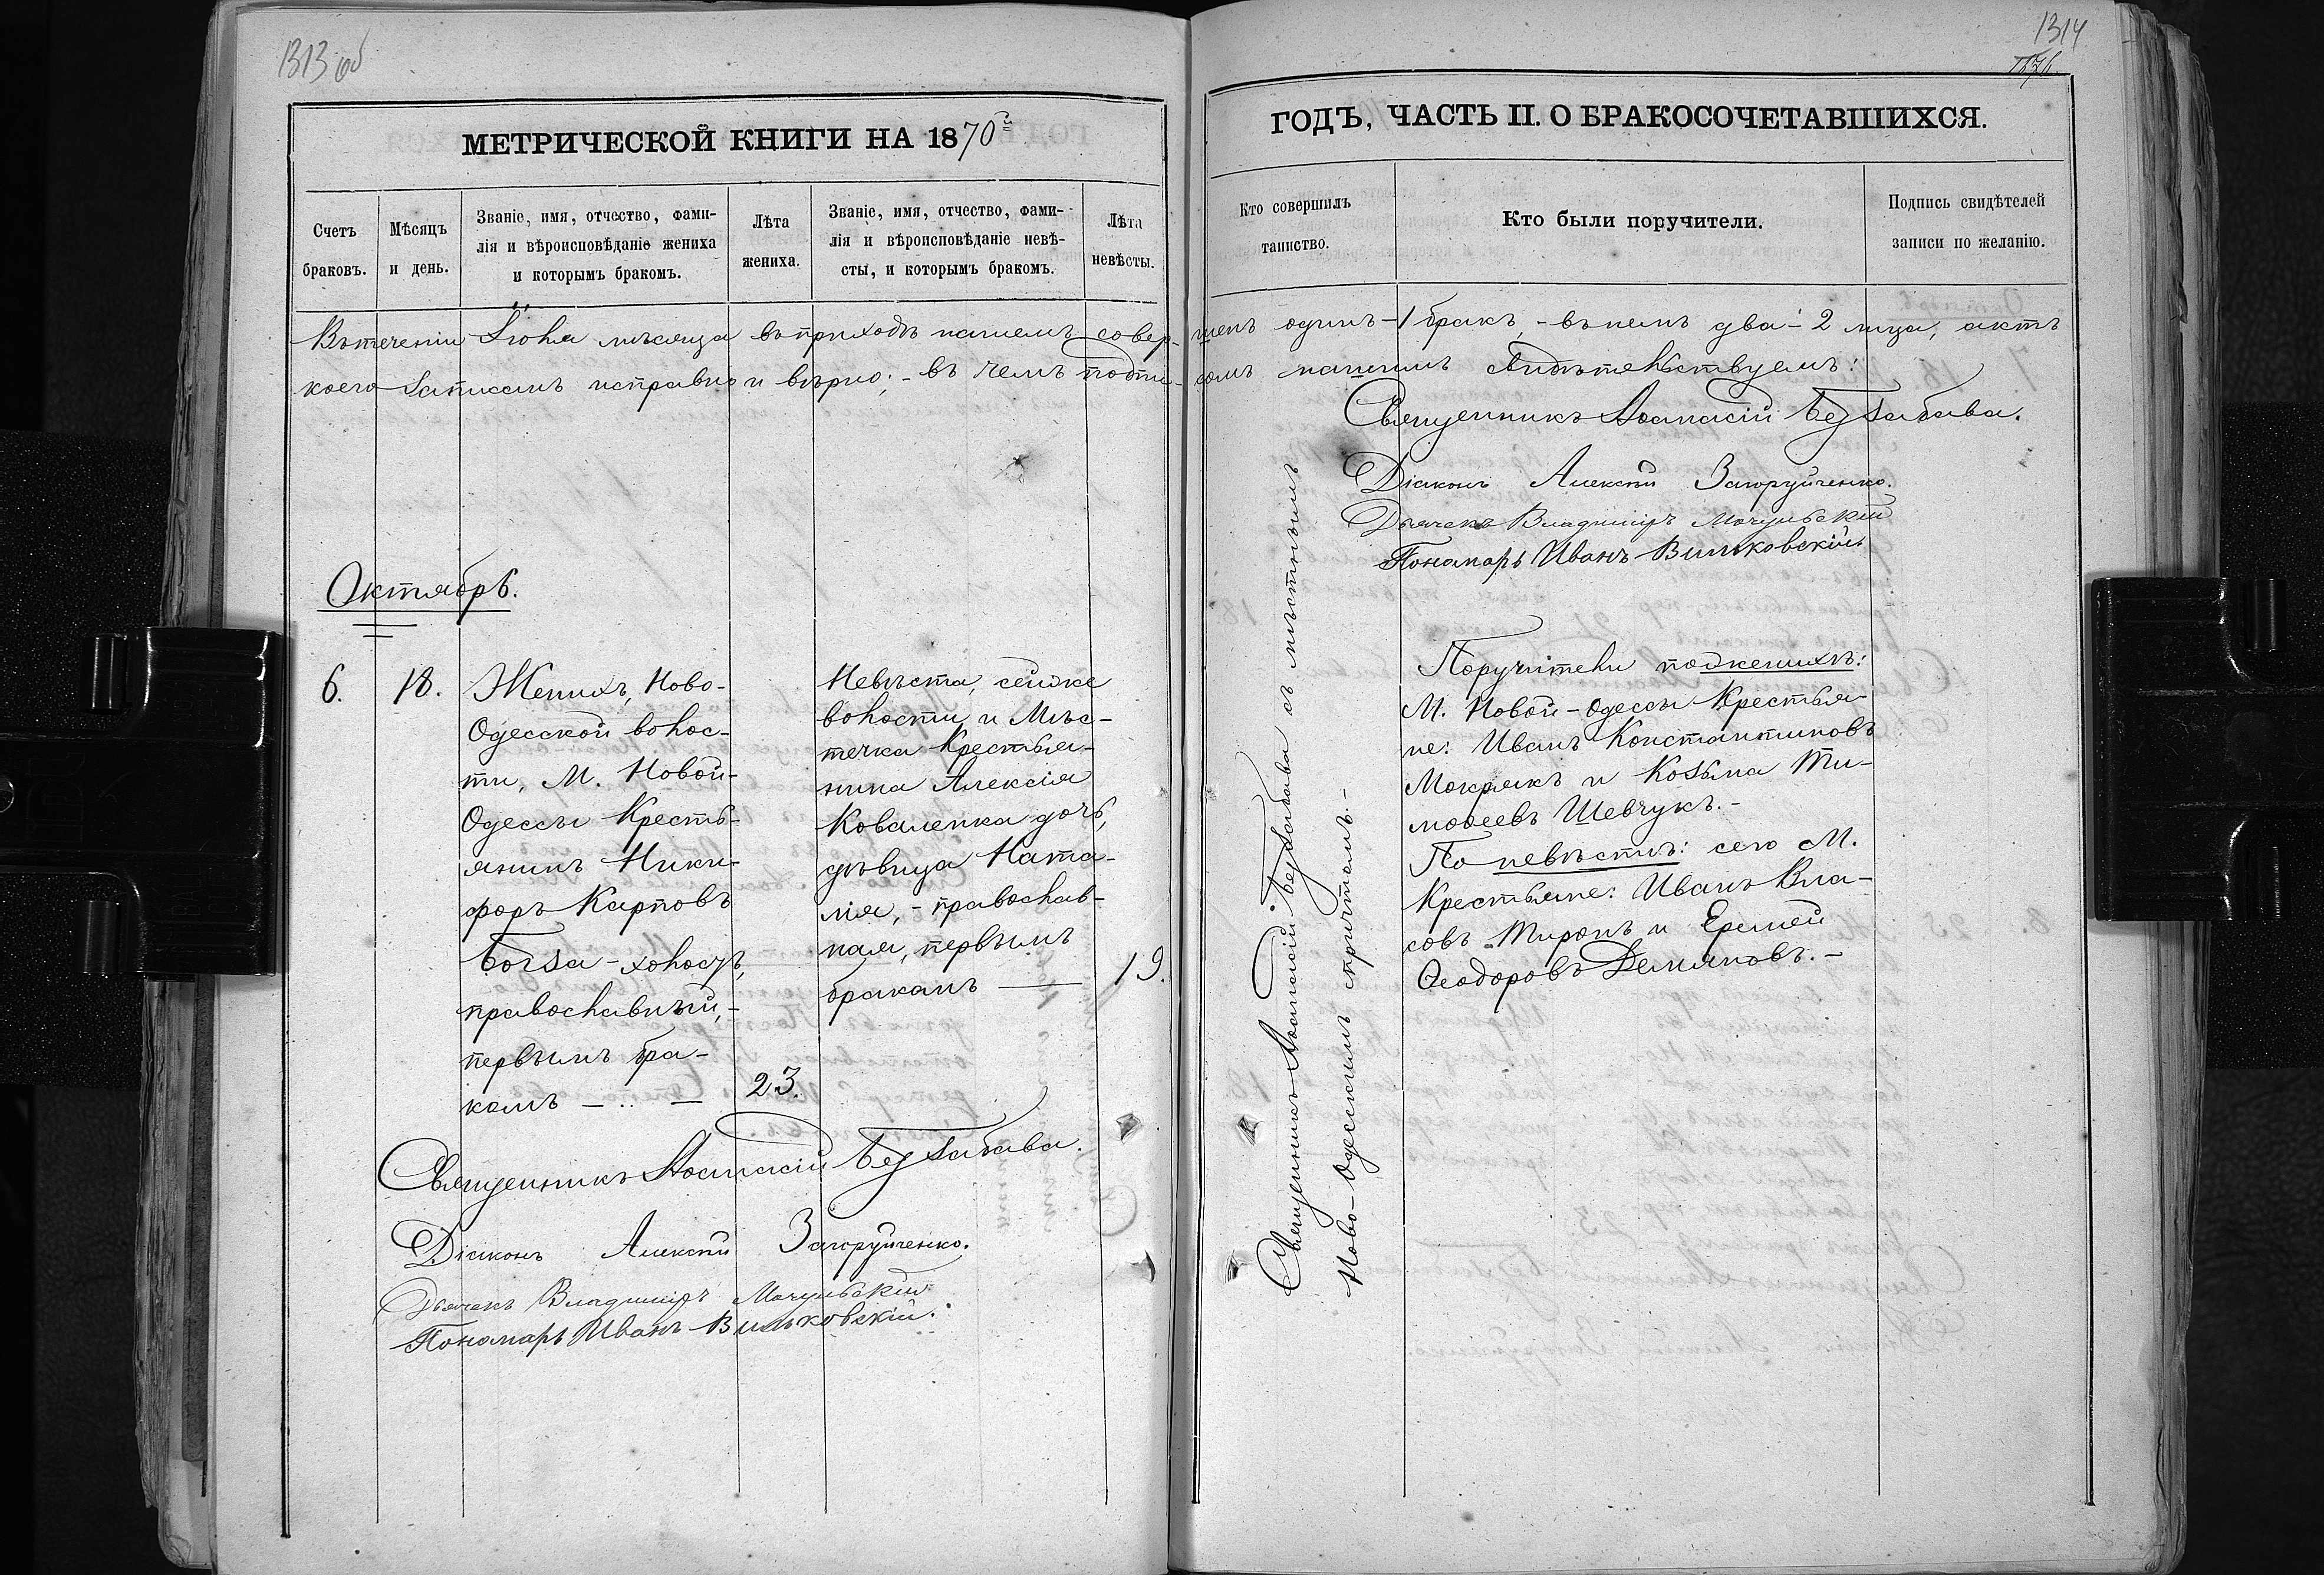 1313 об
МЕТРИЧЕСКОЙ КНИГИ НА 1870й
Счетъ браковъ.
Мѣсяцъ и день.
Званіе, имя, отчество, фами-
лія и вѣроисповѣданіе жениха
и которымъ бракомъ.
Лѣта жениха.
Званіе, имя, отчество, фами-
лія и вѣроисповѣданіе невѣ-
сты, и которымъ бракомъ.
Лѣта невѣсты.
1314
ГОДЪ, ЧАСТЬ II. О БРАКОСОЧЕТАВШИХСЯ.
Кто совершилъ
таинство.
Кто были поручители.
Подпись свидѣтелей
записи по желанію.
Въ теченіи Іюля мѣсяца въ приходѣ нашемъ совер-шенъ одинъ - 1 бракъ, - въ немъ два - 2 лица, актъ
коего записанъ исправно и вѣрно; - въ чемъ подпи-сомъ нашимъ свидѣтельствуемъ:
Священникъ Аѳанасій Беззабава.
Діаконъ Алексѣй Загоруйченко.
Дьячекъ Владиміръ Мачульскій
Пономарь Иванъ Вильковскій
Октябрь.
6.
18.
Женихъ, Ново-
Одесской волос-
ти, М. Новой-
Одессы Кресть-
янинъ Ники-
форъ Карповъ
Богза-холосъ,
православный,-
первымъ бра-
комъ — .. —
23.
Невѣста, сейже
волости, и Мѣс-
течка Крестья-
нина Алексія
Коваленка дочь,
дѣвица Ната-
лія, - православ-
ная, первымъ
бракомъ —
19.
Священникъ Аѳанасій Беззабава съ мѣстнымъ
Ново-Одесскимъ причтомъ.-
Поручители по женихѣ:
М. Новой-Одессы Крестья-
не: Иванъ Константиновъ
Мокрякъ и Козьма Ти-
моѳеевъ Шевчукъ.-
По невѣстѣ: сего М.
Крестьяне: Иванъ Вла-
совъ Миронъ и Еремей
Ѳеодоровъ Демяновъ.-
Священникъ Аѳанасій Беззабава.
Діаконъ Алексѣй Загоруйченко.
Дьячекъ Владиміръ Мачульскій
Пономарь Иванъ Вильковскій.